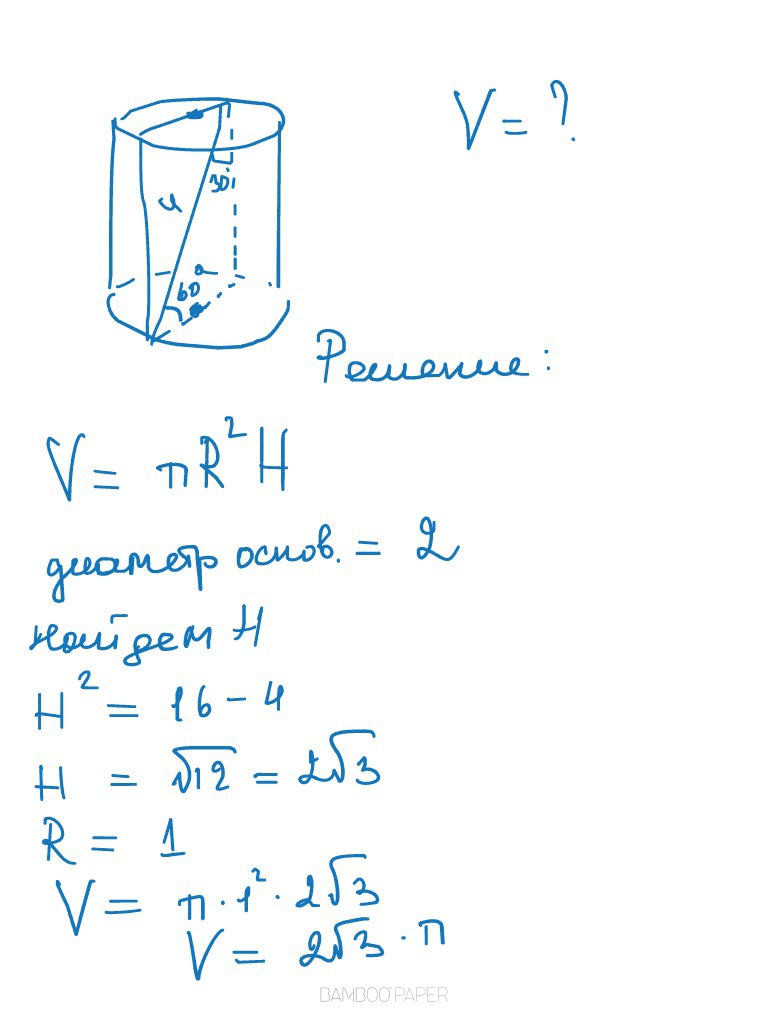 V = ?
4
30
60
Решение:
V = πR²H
диаметр основ. = 2
найдем H
H² = 16 - 4
H = √12 = 2√3
R = 1
V = π · 1² · 2√3
V = 2√3 · π
BAMBOO PAPER